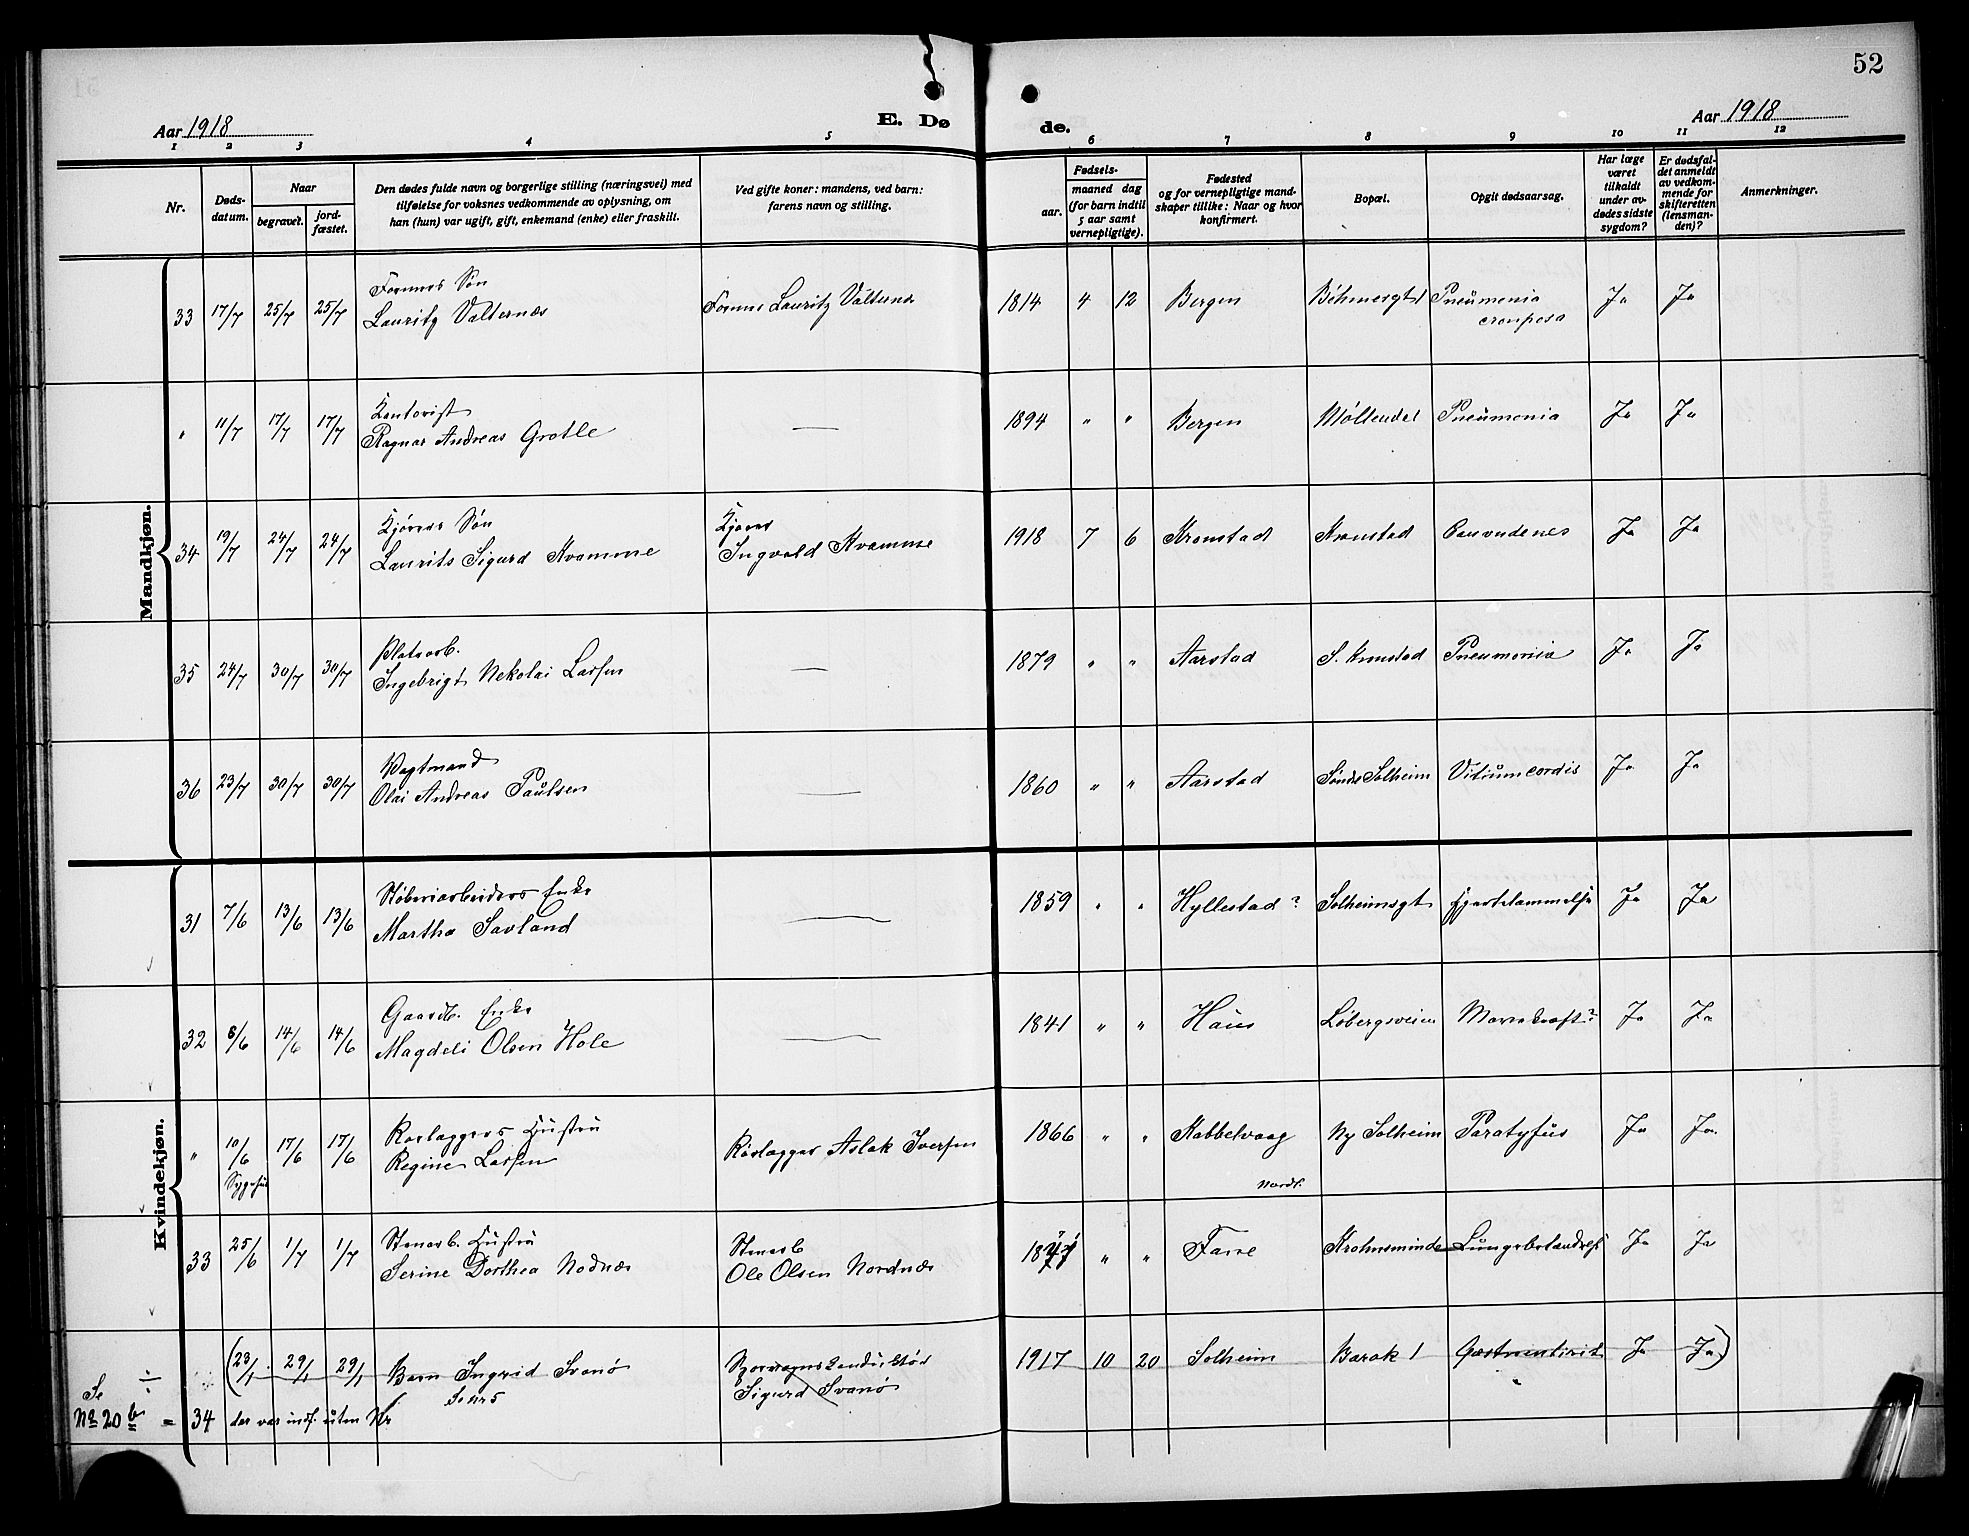 52
Aar 1918
E. Dø
de.
Aar 1918
1 2 3 4 5 6 7 8 9 10 11 12
Nr.
Døds-
datum.
Naar
begravet.
jord-
fæstet.
Den dødes fulde navn og borgerlige stilling (næringsvei) med
tilføielse for voksnes vedkommende av oplysning, om
han (hun) var ugift, gift, enkemand (enke) eller fraskilt.
Ved gifte koner: mandens, ved barn:
farens navn og stilling.
Fødsels-
aar.
maaned dag
(for barn indtil
5 aar samt
vernepligtige).
Fødested
og for vernepligtige mand-
skaper tillike: Naar og hvor
konfirmert.
Bopæl.
Opgit dødsaarsag.
Har læge
været
tilkaldt
under av-
dødes sidste
sygdom?
Er dødsfal-
det anmeldt
av vedkom-
mende for
skifteretten
(lensman-
den)?
Anmerkninger.
Mandkjøn.
33 17/7 25/7 25/7 Formers Søn
Lauritz Valternæs Former Lauritz 1814 4 12 Bergen Pneumonia
Ja Ja
" 11/7 17/7 17/7 Kontorist
Ragnar Andreas Grotle — 1894 " " Bergen Møllendal Pneumonia Ja Ja
34 19/7 24/7 24/7 Kjørers Søn
Laurits Sigurd Kvamme
Kjører
Ingvald Kvamme 1918 7 6 Kronstad Kronstad Ja Ja
35 24/7 30/7 30/7
Ingebrigt Nekolai Larsen — 1879 " " Aarstad S. Kronstad Pneumonia Ja Ja
36 23/7 30/7 30/7 Vagtmand
Olai Andreas Paulsen — 1860 " " Aarstad Søndre Solheim Vitium cordis Ja Ja
Kvindekjøn.
31 7/6 13/6 13/6 Støberiarbeiders Enke
Martha Savland — 1859 " " Hyllestad? Solheimsgt Hjertelammelse Ja Ja
32 8/6 14/6 14/6 Gaardb. Enke
Magdeli Olsen Hole — 1841 " " Haus Løbergsveien Ja Ja
" 10/6 17/6 17/6 Hustru
Sygehus Regine Larsen Aslak Iversen 1866 " " Kabbelvaag Ny Solheim Paratyfus Ja Ja.
Nordl.
33 25/6 1/7 1/7 Stenarb. Hustru
Serine Dorthea Nodnæs
Stenarb
Ole Olsen Nordnæs " " Krohnsminde Lungebetændelse Ja Ja
÷ (23/1 29/1 29/1 Barn Ingrid Svanø
Sigurd Svanø 1917 10 20 Solheim Barak 1 Ja Ja)
Se
No 20 b = 34 der var indf. uten Nr